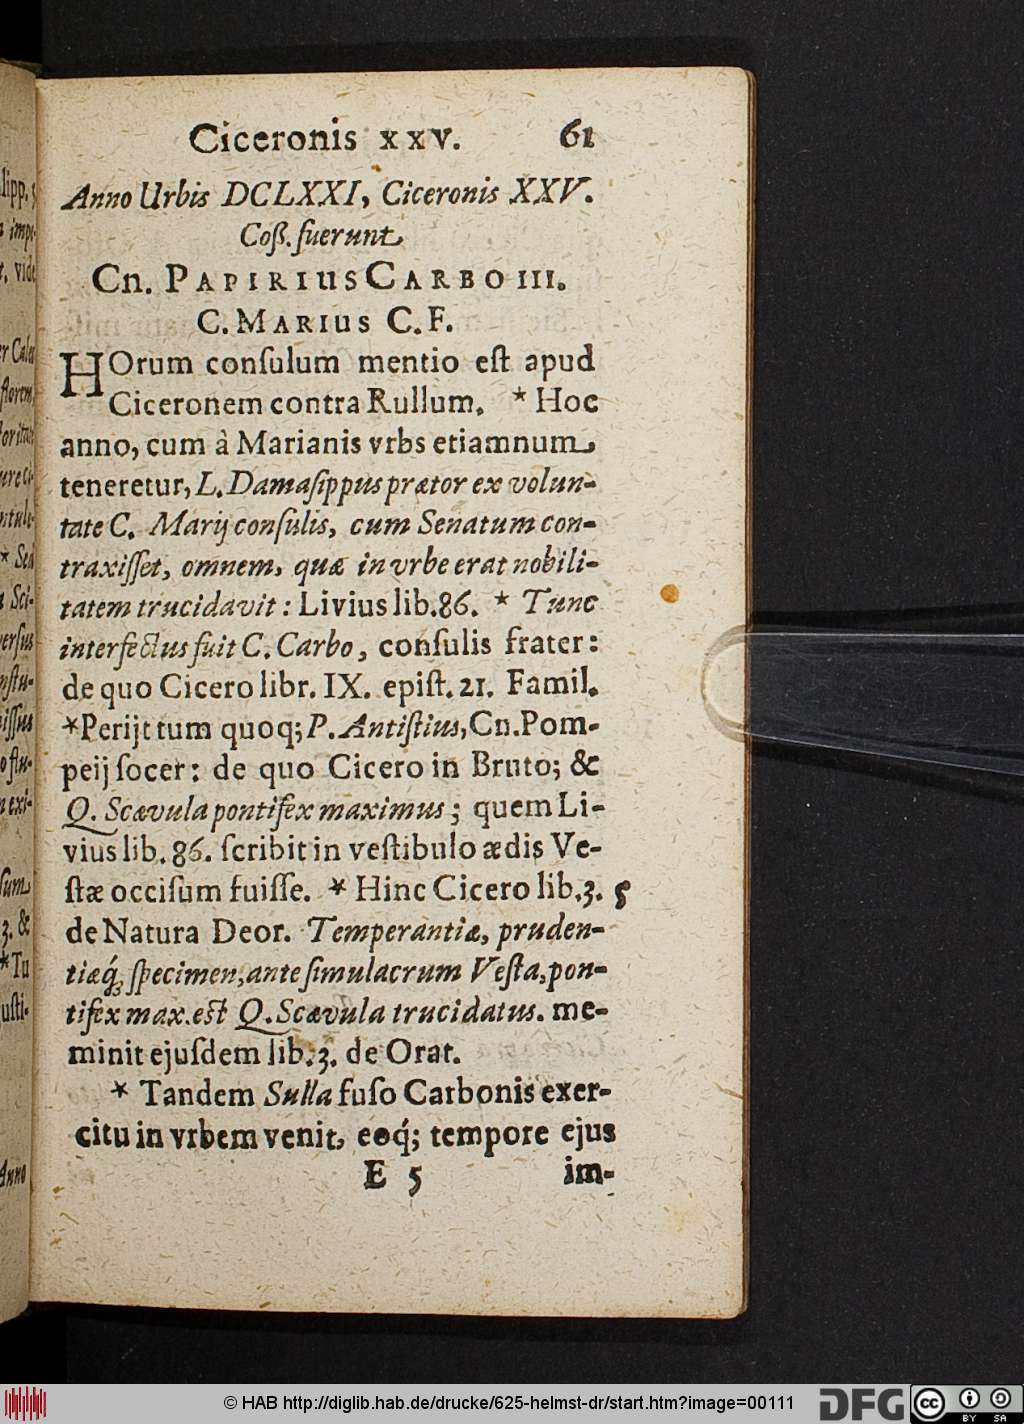 Ciceronis xxv. 61
Anno Urbis DCLXXI, Ciceronis XXV.
Coß. fuerunt
Cn. PAPIRIUS CARBO III.
C. MARIUS C. F.
HOrum conſulum mentio eſt apud
Ciceronem contra Rullum. * Hoc
anno, cum à Marianis vrbs etiamnum
teneretur, L. Damaſippus prætor ex volun-
tate C. Marij conſulis, cum Senatum con-
traxiſſet, omnem, quæ in vrbe erat nobili-
tatem trucidavit: Livius lib. 86. * Tunc
interfectus fuit C. Carbo, conſulis frater:
de quo Cicero libr. IX. epiſt. 21. Famil.
*Perijt tum quoq; P. Antiſtius, Cn. Pom-
peij ſocer: de quo Cicero in Bruto; &
Q. Scævula pontifex maximus; quem Li-
vius lib. 86. ſcribit in veſtibulo ædis Ve-
ſtæ occiſum fuiſſe. * Hinc Cicero lib. 3. §
de Natura Deor. Temperantiæ, pruden-
tiæq́; ſpecimen, ante ſimulacrum Veſtæ, pon-
tifex max. est Q. Scævula trucidatus. me-
minit ejuſdem lib. 3. de Orat.
* Tandem Sulla fuſo Carbonis exer-
citu in vrbem venit, eoq́; tempore ejus
E 5 im-
lipp. 5
impe-
t, vide
er Cales
florem
toritate
ntuli-
* Sed
t Sci-
verſus
nſtu-
iſſus
o flu-
n exi-
ſum
3. &
* Tu
uſti-
Anno
© HAB http://diglib.hab.de/drucke/625-helmst-dr/start.htm?image=00111
DFG
cc
BY SA